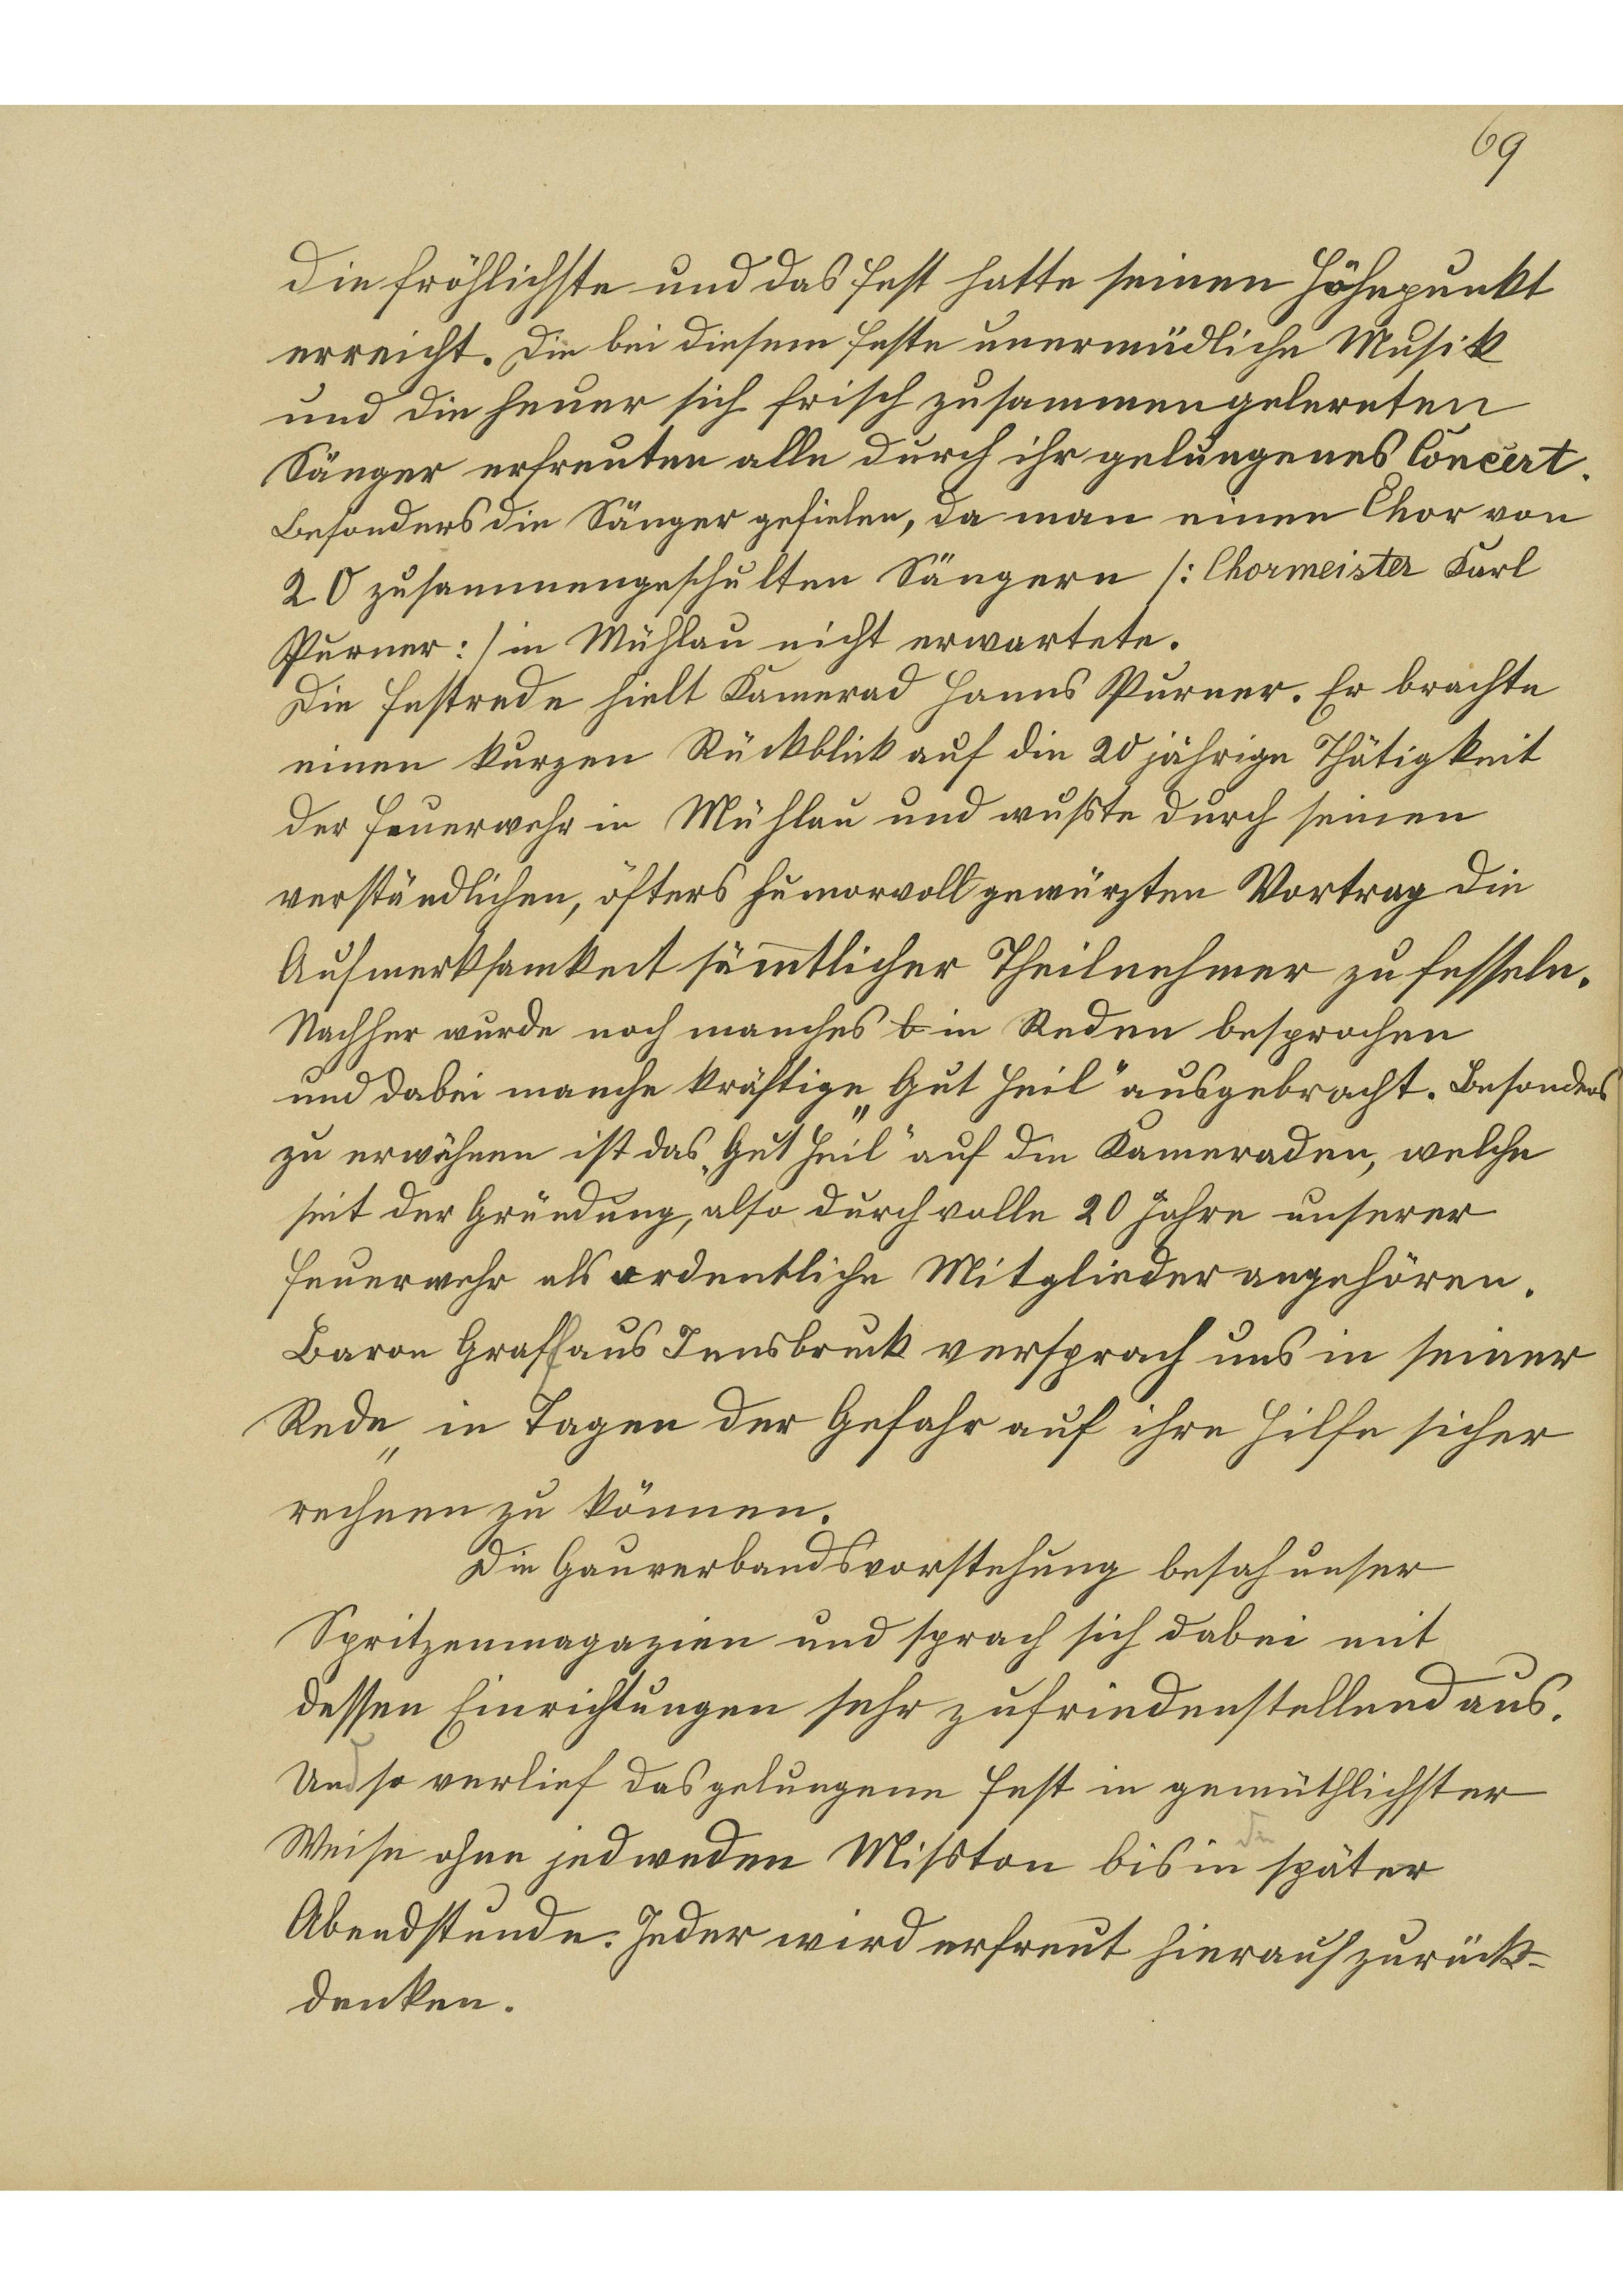 69
die fröhlichste und das Fest hatte seinen Höhepunkt
erreicht. Die bei diesem Feste unermüdliche Musik
und die heuer sich frisch zusammengelernten
Sänger erfreuten alle durch ihr gelungenes Concert.
Besonders die Sänger gefielen, da man einen Chor von
20 zusammengeschulten Sängern /: Chormeister Karl
Purner :/ in Mühlau nicht erwartete.
Die Festrede hielt Kamerad Hanns Purner. Er brachte
einen kurzen Rückblick auf die 20 jährige Thätigkeit
der Feuerwehr in Mühlau und wußte durch seinen
verständlichen, öfters humorvoll gewürzten Vortrag die
Aufmerksamkeit säm̅tlicher Theilnehmer zu fesseln.
Nachher wurde noch manches b in Reden besprochen
und dabei manche kräftige „Gut Heil“ ausgebracht. Besonders
zu erwähnen ist das „Gut Heil“ auf die Kameraden, welche
seit der Gründung, also durch volle 20 Jahre unserer
Feuerwehr als ordentliche Mitglieder angehören.
Baron Graff aus Innsbruck versprach uns in seiner
Rede „ in Tagen der Gefahr auf ihre Hilfe sicher
rechnen zu können.
Die Gauverbandsvorstehung besah unser
Spritzenmagazien und sprach sich dabei mit
dessen Einrichtungen sehr zufriedenstellend aus.
Und so verlief das gelungene Fest in gemüthlichster
Weise ohne jedweden Mißton bis in die später
Abendstunde. Jeder wird erfreut hierauf zurück-
denken.